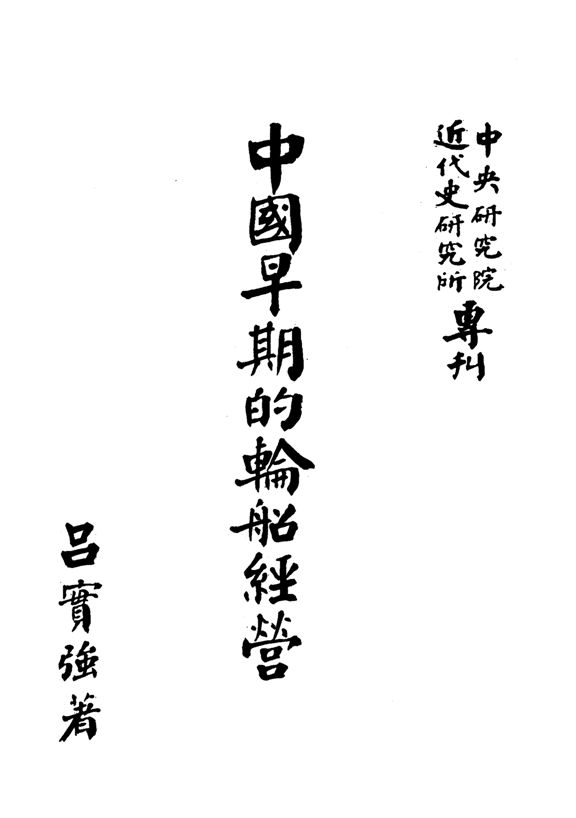 中央研究院
近代史研究所
專刊
中國早期的輪船經營
呂實強著